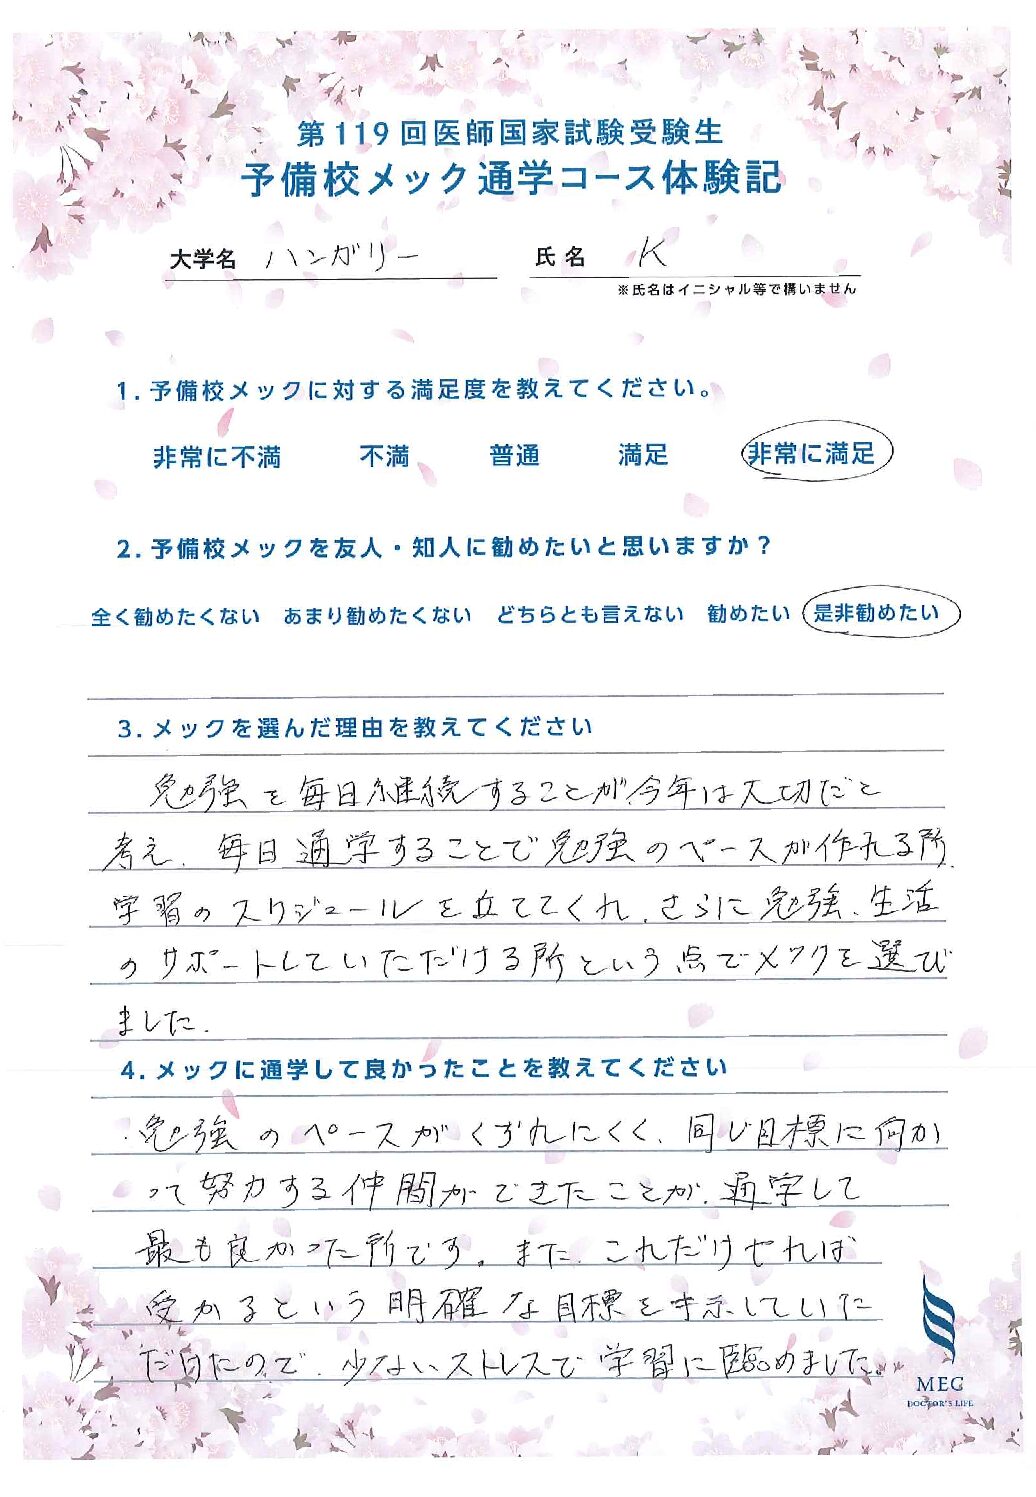 第119回医師国家試験受験生
予備校メック通学コース体験記
大学名 ハンガリー 氏名 K
※氏名はイニシャル等で構いません
1. 予備校メックに対する満足度を教えてください。
非常に不満 不満 普通 満足 非常に満足
2. 予備校メックを友人・知人に勧めたいと思いますか？
全く勧めたくない あまり勧めたくない どちらとも言えない 勧めたい 是非勧めたい
3. メックを選んだ理由を教えてください
勉強を毎日継続することが今年は大切だと
考え、毎日通学することで勉強のペースが作れる所、
学習のスケジュールを立ててくれ、さらに勉強、生活
のサポートしていただける所という点でメックを選び
ました。
4. メックに通学して良かったことを教えてください
・勉強のペースがくずれにくく、同じ目標に向か
って努力する仲間ができたことが、通学して
最も良かった所です。また、これだけやれば
受かるという明確な目標を提示していた
だけたので、少ないストレスで学習に臨めました。
MEC
DOCTOR'S LIFE